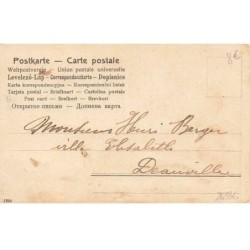 Postkarte — Carte postale
Weltpostverein — Union postale universelle
Levelező-Lap — Correspondenzkarte — Dopisnice
Karta korespondencyjna — Korespondenční lístek
Tarjeta postal — Briefkaart — Cartolina postale
Post card — Brefkort — Brevkort
Открытое письмо — Дописна карта
Monsieur Henri Berger
ville Elisabeth
Deauville